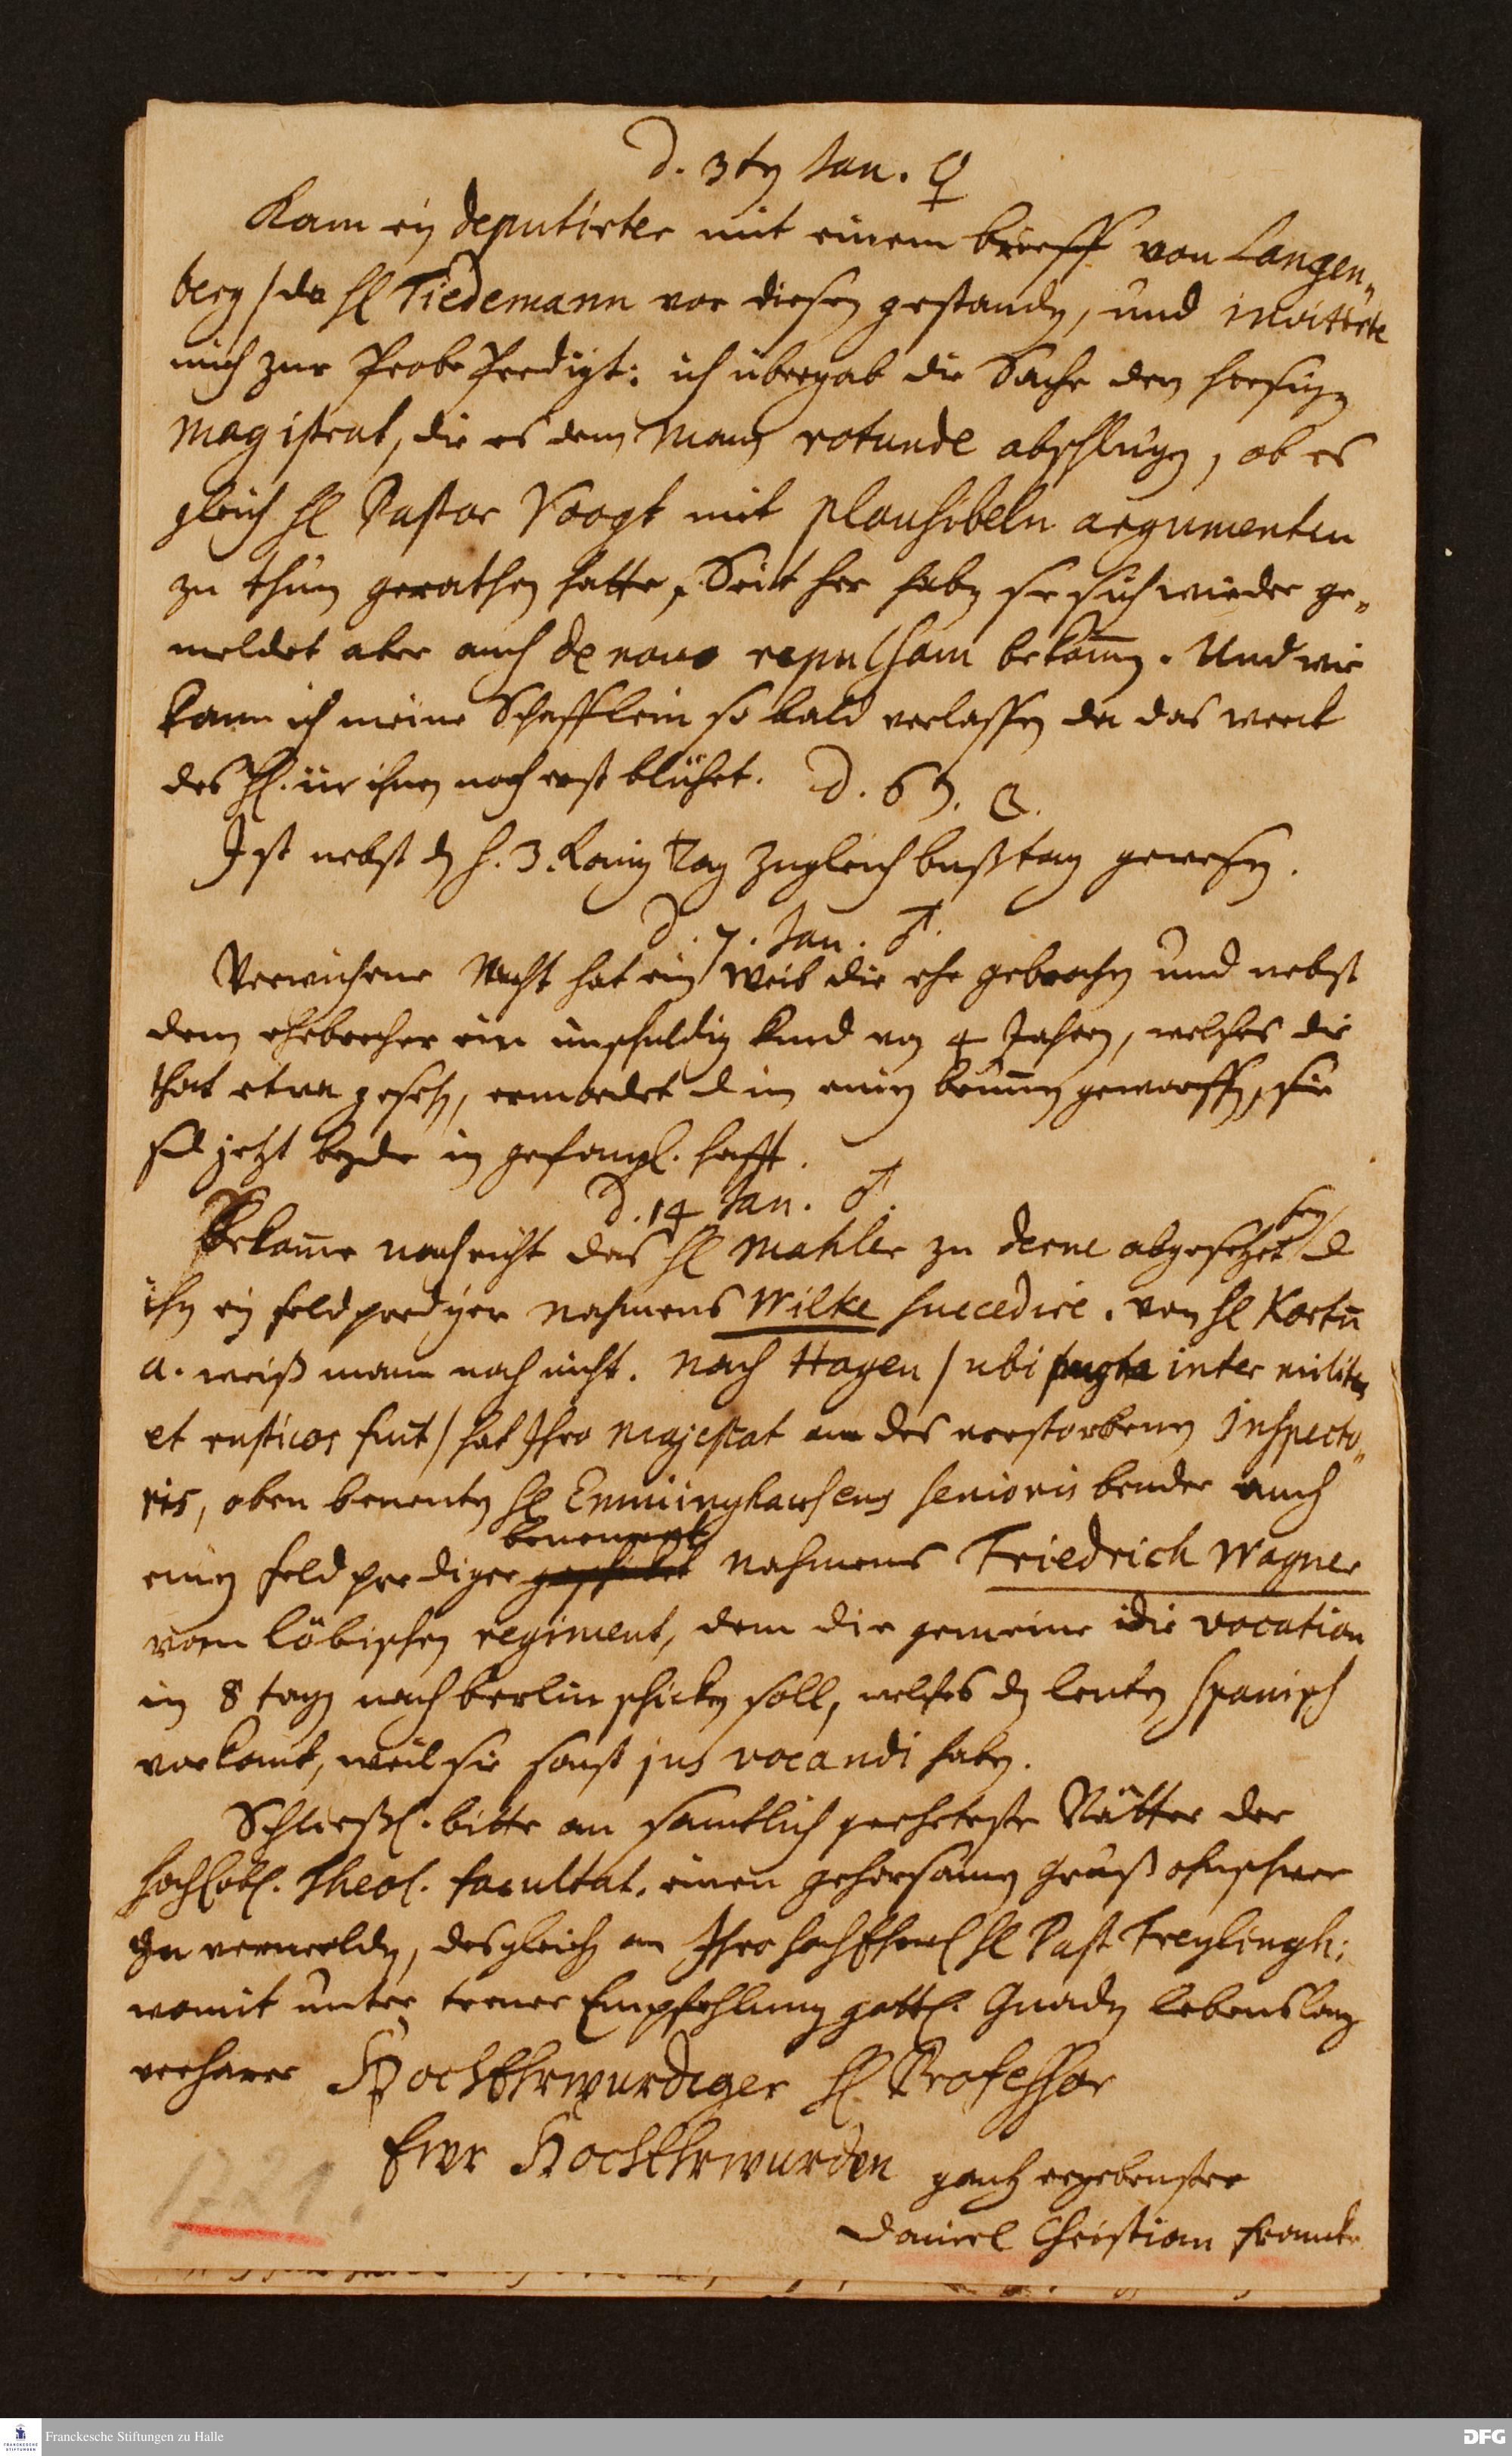 d. 3ty Jan. ♀
Kam ein deputirter mit einem brieff von Langen„
berg / da H Tiedemann vor diesen gestanden, und invitirte
mich zur Probe Predigt: ich übergab die Sache den hiesigen
Magistrat, die es dem Mann rotunde abschlugen, ob es
gleich H Pastor Voogt mit plausibeln argumenten
zu thun gerathen hatte, Seit her haben sie sich wieder ge„
meldet aber auch de novo repulsam bekom̄en. Und wie
kann ich meine Schefflein so bald verlassen da das werck
des H. in ihnen noch erst blühet. d. 6t. ☾.
Ist nebst den h. 3. König Tag zugleich bußtag gewesen.
d. 7. Jan. ♂.
Verwichene Nacht hat ein Weib die ehe gebrochen und nebst
dem ehebrecher ein unschuldig kind von 4 Jahren, welches die
that etwa gesehen, ermordet u in einen brun̄en geworffen, sie
sd jetzt beyde in gefängl. hafft.
d. 14 Jan. ♂.
Bekom̄e nachricht das H Mahler zu derne abgesetzet sey u
ihm ein feldprediger nahmens Wilke succedire. von H Kortū
a. weiß mann noch nicht. Nach Hagen / ubi pugna inter milites
et rusticos fuit / hat Ihro Majestat an des verstorbenen Inspecto„
ris, oben benenten H Emminghausens senioris bruder auch
benennet
einen feldprediger geschicket nahmens Friedrich Wagner
vom löbischen regiment, dem die gemeine die vocation
in 8 tagen nach berlin schicken soll, welches den leuten spanisch
vorkomt, weil sie sonst jus vocandi haben.
Schließl. bitte an samtlich geehrteste Vätter der
hochlöbl. Theol. facultat. einen gehorsamen gruß ohnschwer
zu vermelden, desgleichen an Ihro hochEhrw H Past Freylingh:
womit unter treuer Empfehlung gottl. Gnaden lebenslang
verharre HochEhrwurdiger H. Professor
Ewr HochEhrwurden gantz ergebenster
Daniel Christian Francke
1721.
Franckesche Stiftungen zu Halle
DFG